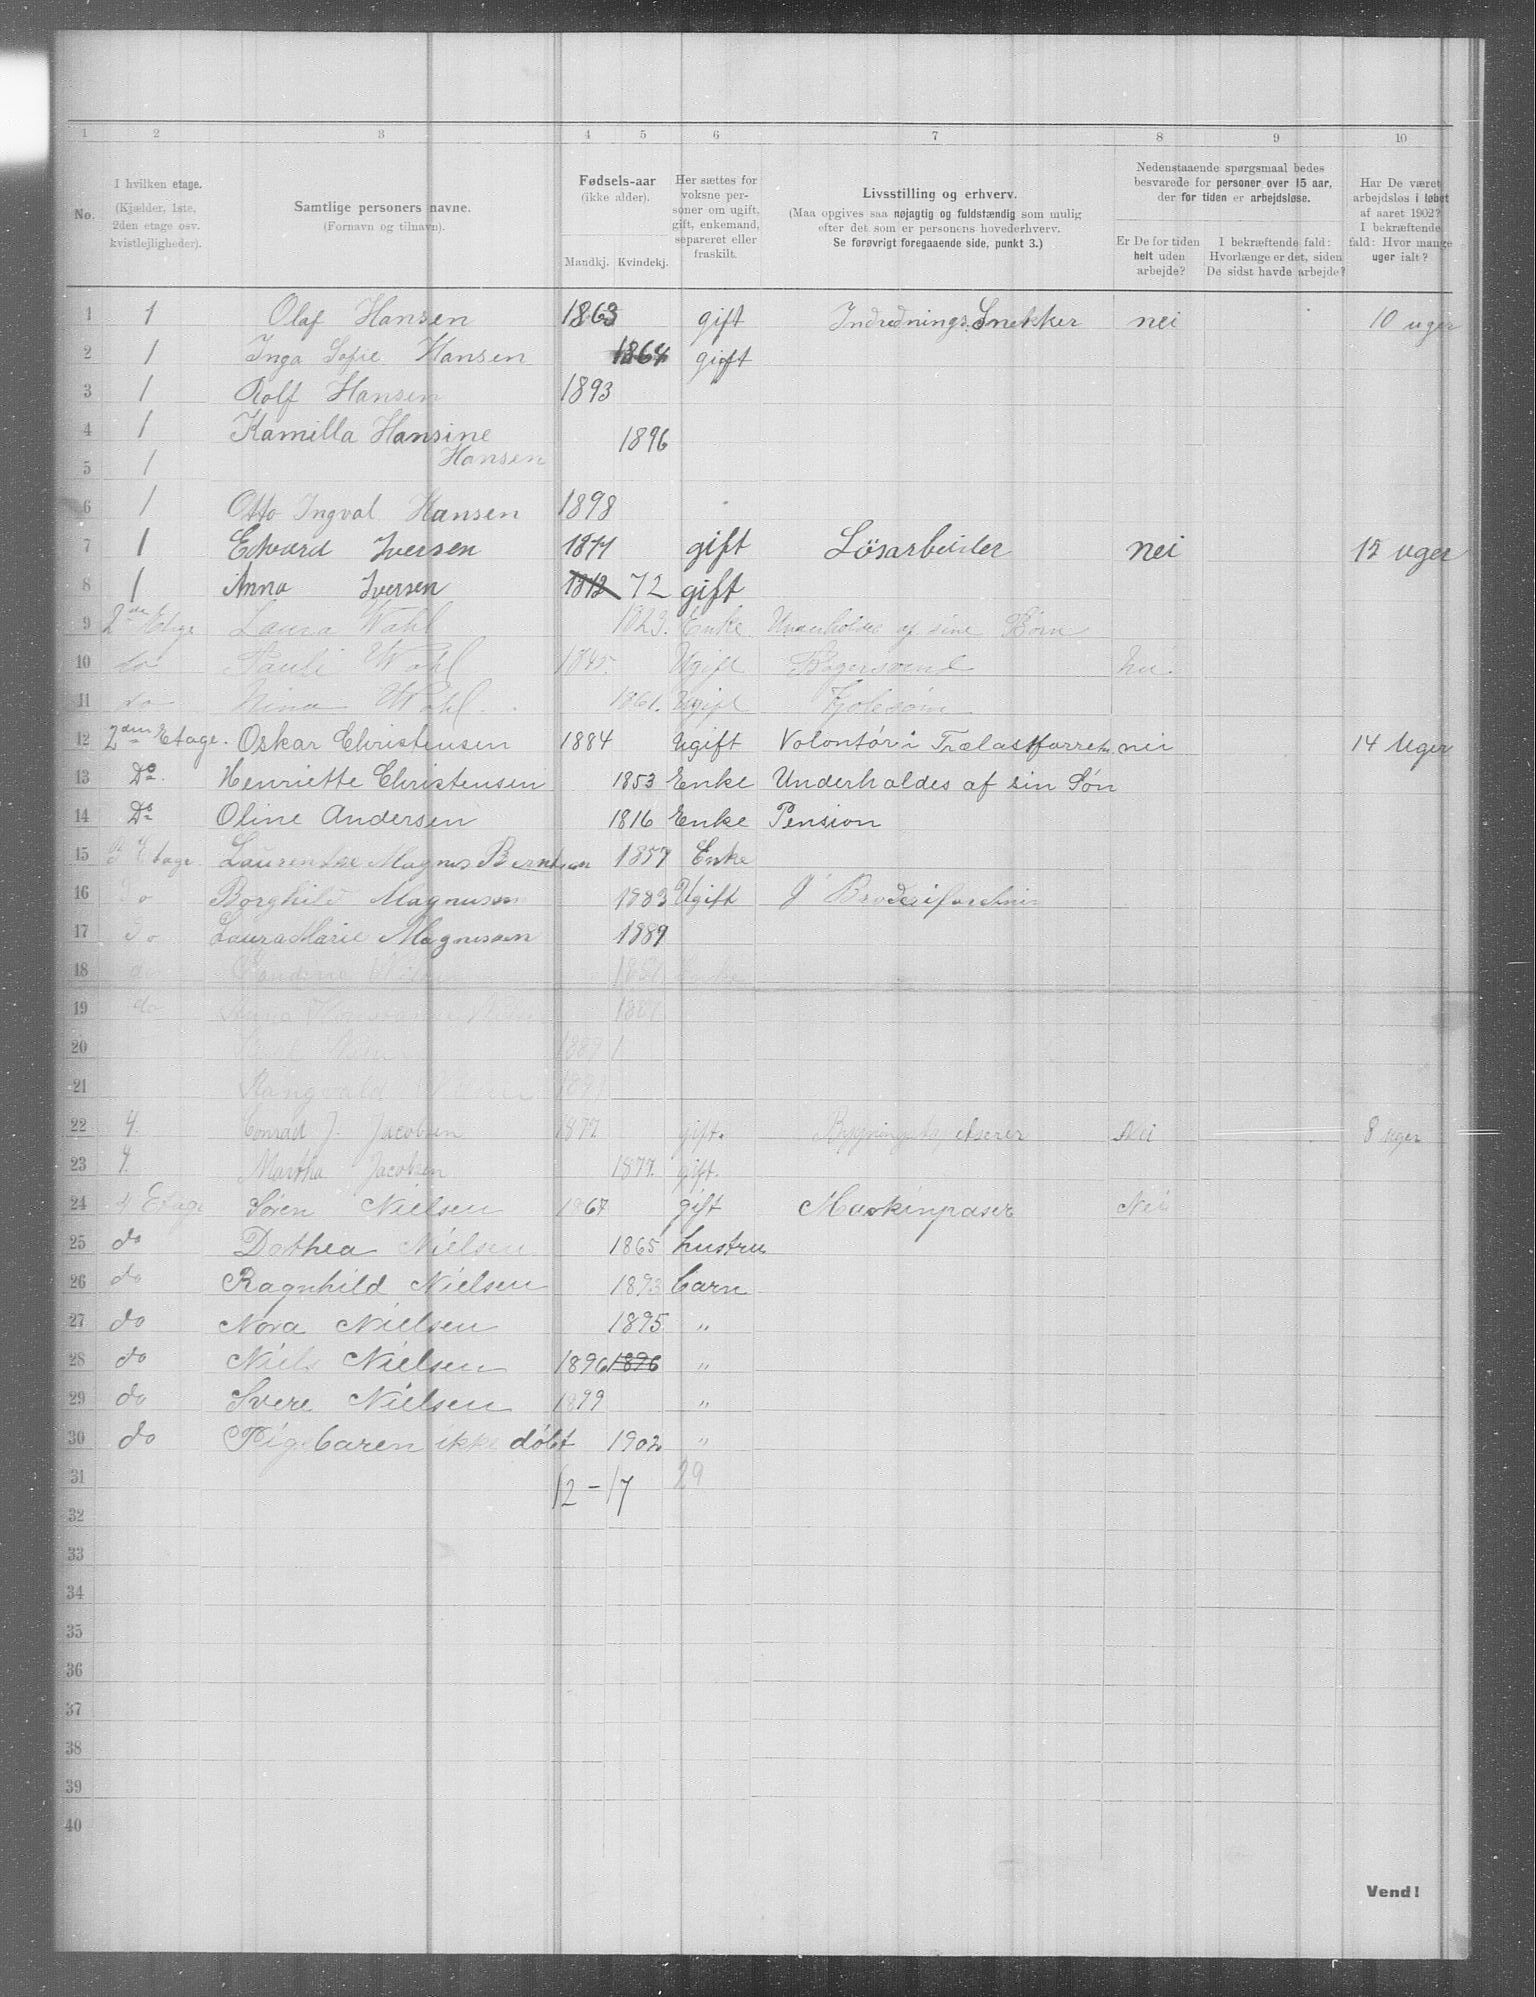 1 2 3 4 5 6 7 8 9 10
No.
I hvilken etage.
(Kjælder, 1ste,
2den etage osv.
kvistlejligheder).
Samtlige personers navne.
(Fornavn og tilnavn).
Fødsels-aar
(ikke alder).
Mandkj. Kvindekj.
Her sættes for
voksne per-
soner om ugift,
gift, enkemand,
separeret eller
fraskilt.
Livsstilling og erhverv.
(Maa opgives saa nøjagtig og fuldstændig som mulig
efter det som er personens hovederhverv.
Se forøvrigt foregaaende side, punkt 3.)
Nedenstaaende spørgsmaal bedes
besvarede for personer over 15 aar,
der for tiden er arbejdsløse.
Er De for tiden
helt uden
arbejde?
I bekræftende fald:
Hvorlænge er det, siden
De sidst havde arbejde?
Har De været
arbejdsløs i løbet
af aaret 1902?
I bekræftende
fald: Hvor mange
uger ialt?
1 1 Olaf Hansen 1863 gift Indrednings Snekker nei 10 uger
2 1 Inga Sofie Hansen 1864 gift
3 1 Rolf Hansen 1893
4 1 Kamilla Hansine 1896
5 1 Hansen
6 1 Otto Ingval Hansen 1898
7 1 Edvard Iversen 1871 gift Lösarbeider nei 12 uger
8 1 Anna Iversen 1872 72 gift
9 2de Etge Laura Wahl 1823. Enke Underholdes af sine Børn
10 do Pauli Wahl 1845. Ugift Bagersvend nei.
11 do Nina Wahl. 1861. Ugift Kjolesøm
12 2den Etage. Oskar Christensen 1884 Ugift Volontør i Trælastforretn. nei 14 Uger
13 Do. Henriette Christensen 1853 Enke Underholdes af sin Søn
14 Do Oline Andersen 1816 Enke Pension
15 3 Etage. Laurentse Magnus Berntsen 1857 Enke
16 do Borghild Magnussen 1883 Ugift I Broderiforretni
17 do Laura Marie Magnussen 1889
18 do Enke
19 do Anna
20 1889
21 Rangvald
22 4. Conrad J. Jacobsen 1877 gift. Bygningstapetserer Nei 8 uger
23 4. Martha Jacobsen 1877. gift.
24 4 Etage Søren Nielsen 1867 gift Maskinpaser Nei
25 do Dothea Nielsen 1865 hustru
26 do Ragnhild Nielsen 1893 barn
27 do Nora Nielsen 1895 "
28 do Niels Nielsen 1896 1896 "
29 do Svere Nielsen 1899 "
30 do Pigebaren ikke døbt 1902 "
31 12 - 17 29
32
33
34
35
36
37
38
39
40
Vend!